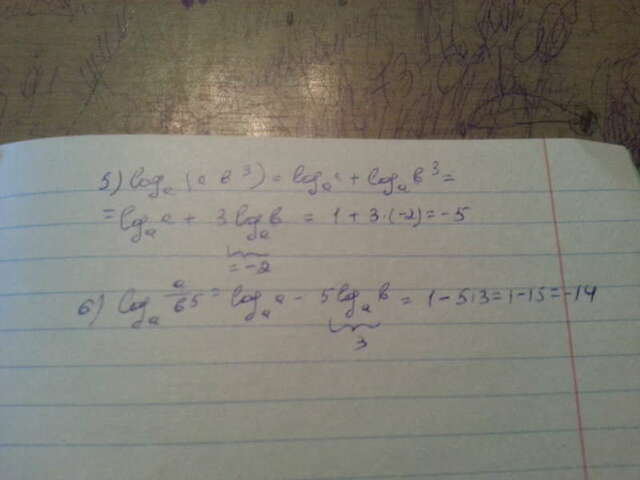 5) logₐ(a b³) = logₐa + logₐb³ =
= logₐa + 3 logₐb = 1 + 3·(-2) = -5
= -2
6) logₐ a/b5 = logₐa - 5 logₐb = 1 - 5·3 = 1 - 15 = -14
3